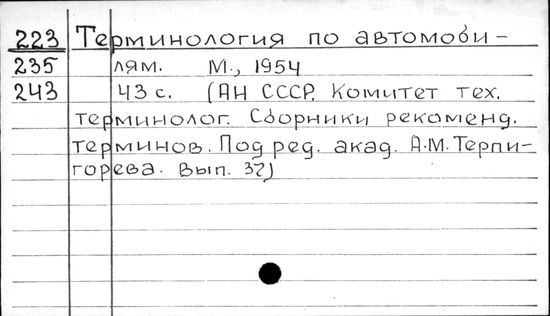 223 Терминология по автомоби-
235 лям. М., 1954
243 43 с. (АН СССР. Комитет тех.
терминолог. Сборники рекоменд.
терминов. Под ред. акад. А.М. Терпи-
горева. Вып. 32)